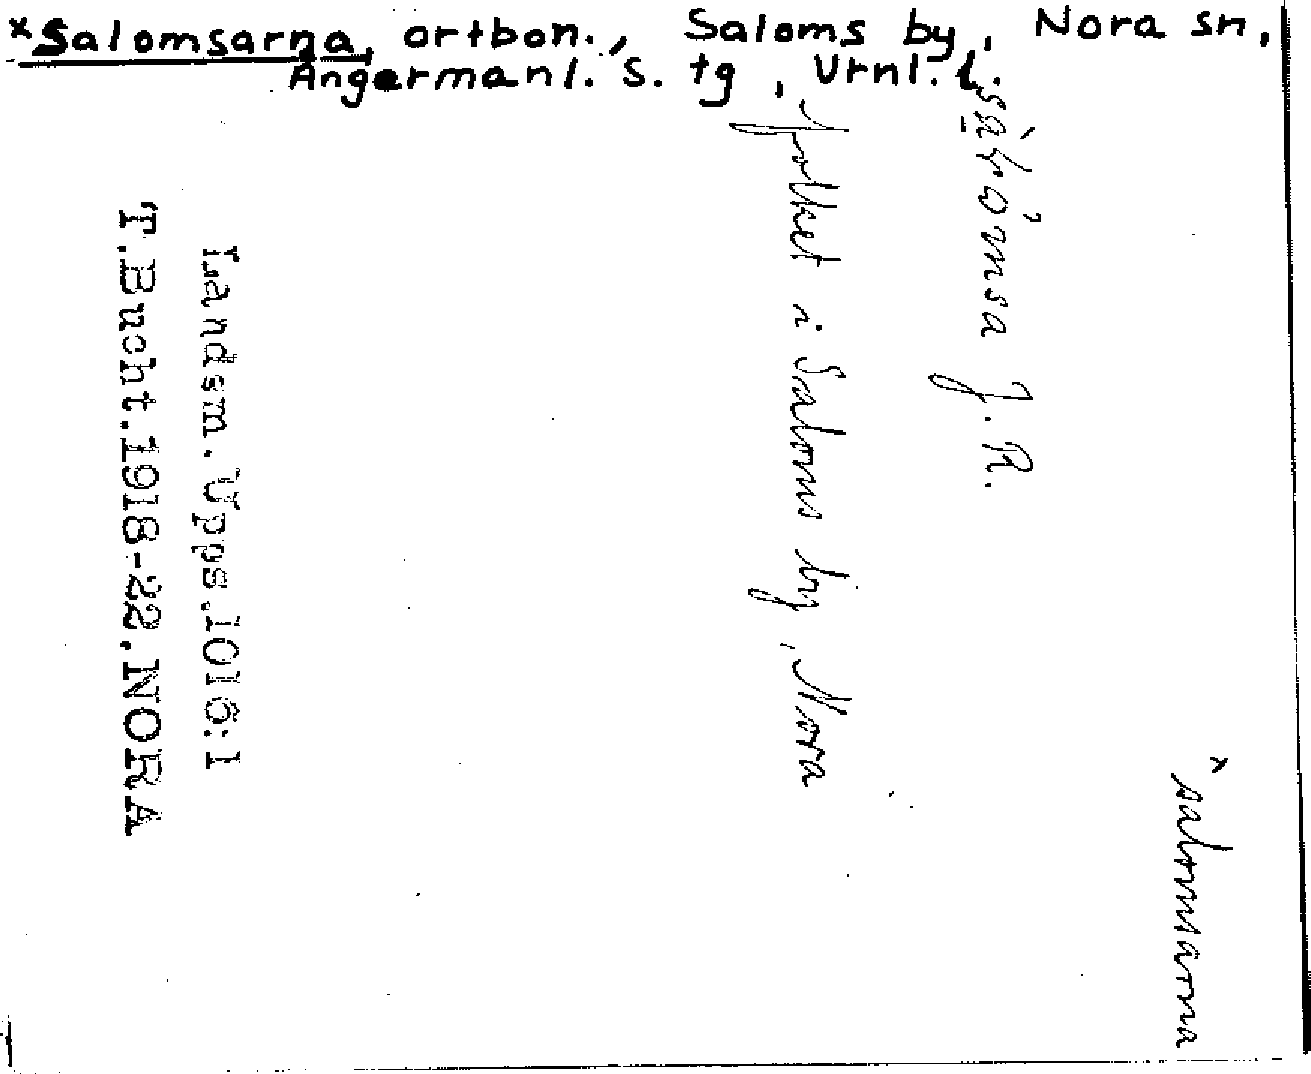 ×Salomsarna, ortbon., Saloms by, Nora sn,
Ångermanl. s. tg, Vrnl. l.
×salomsarna
J. R.
folket i Saloms by, Nora
Landsm. Upps. 1016:1
T. Bucht. 1918-22. NORA